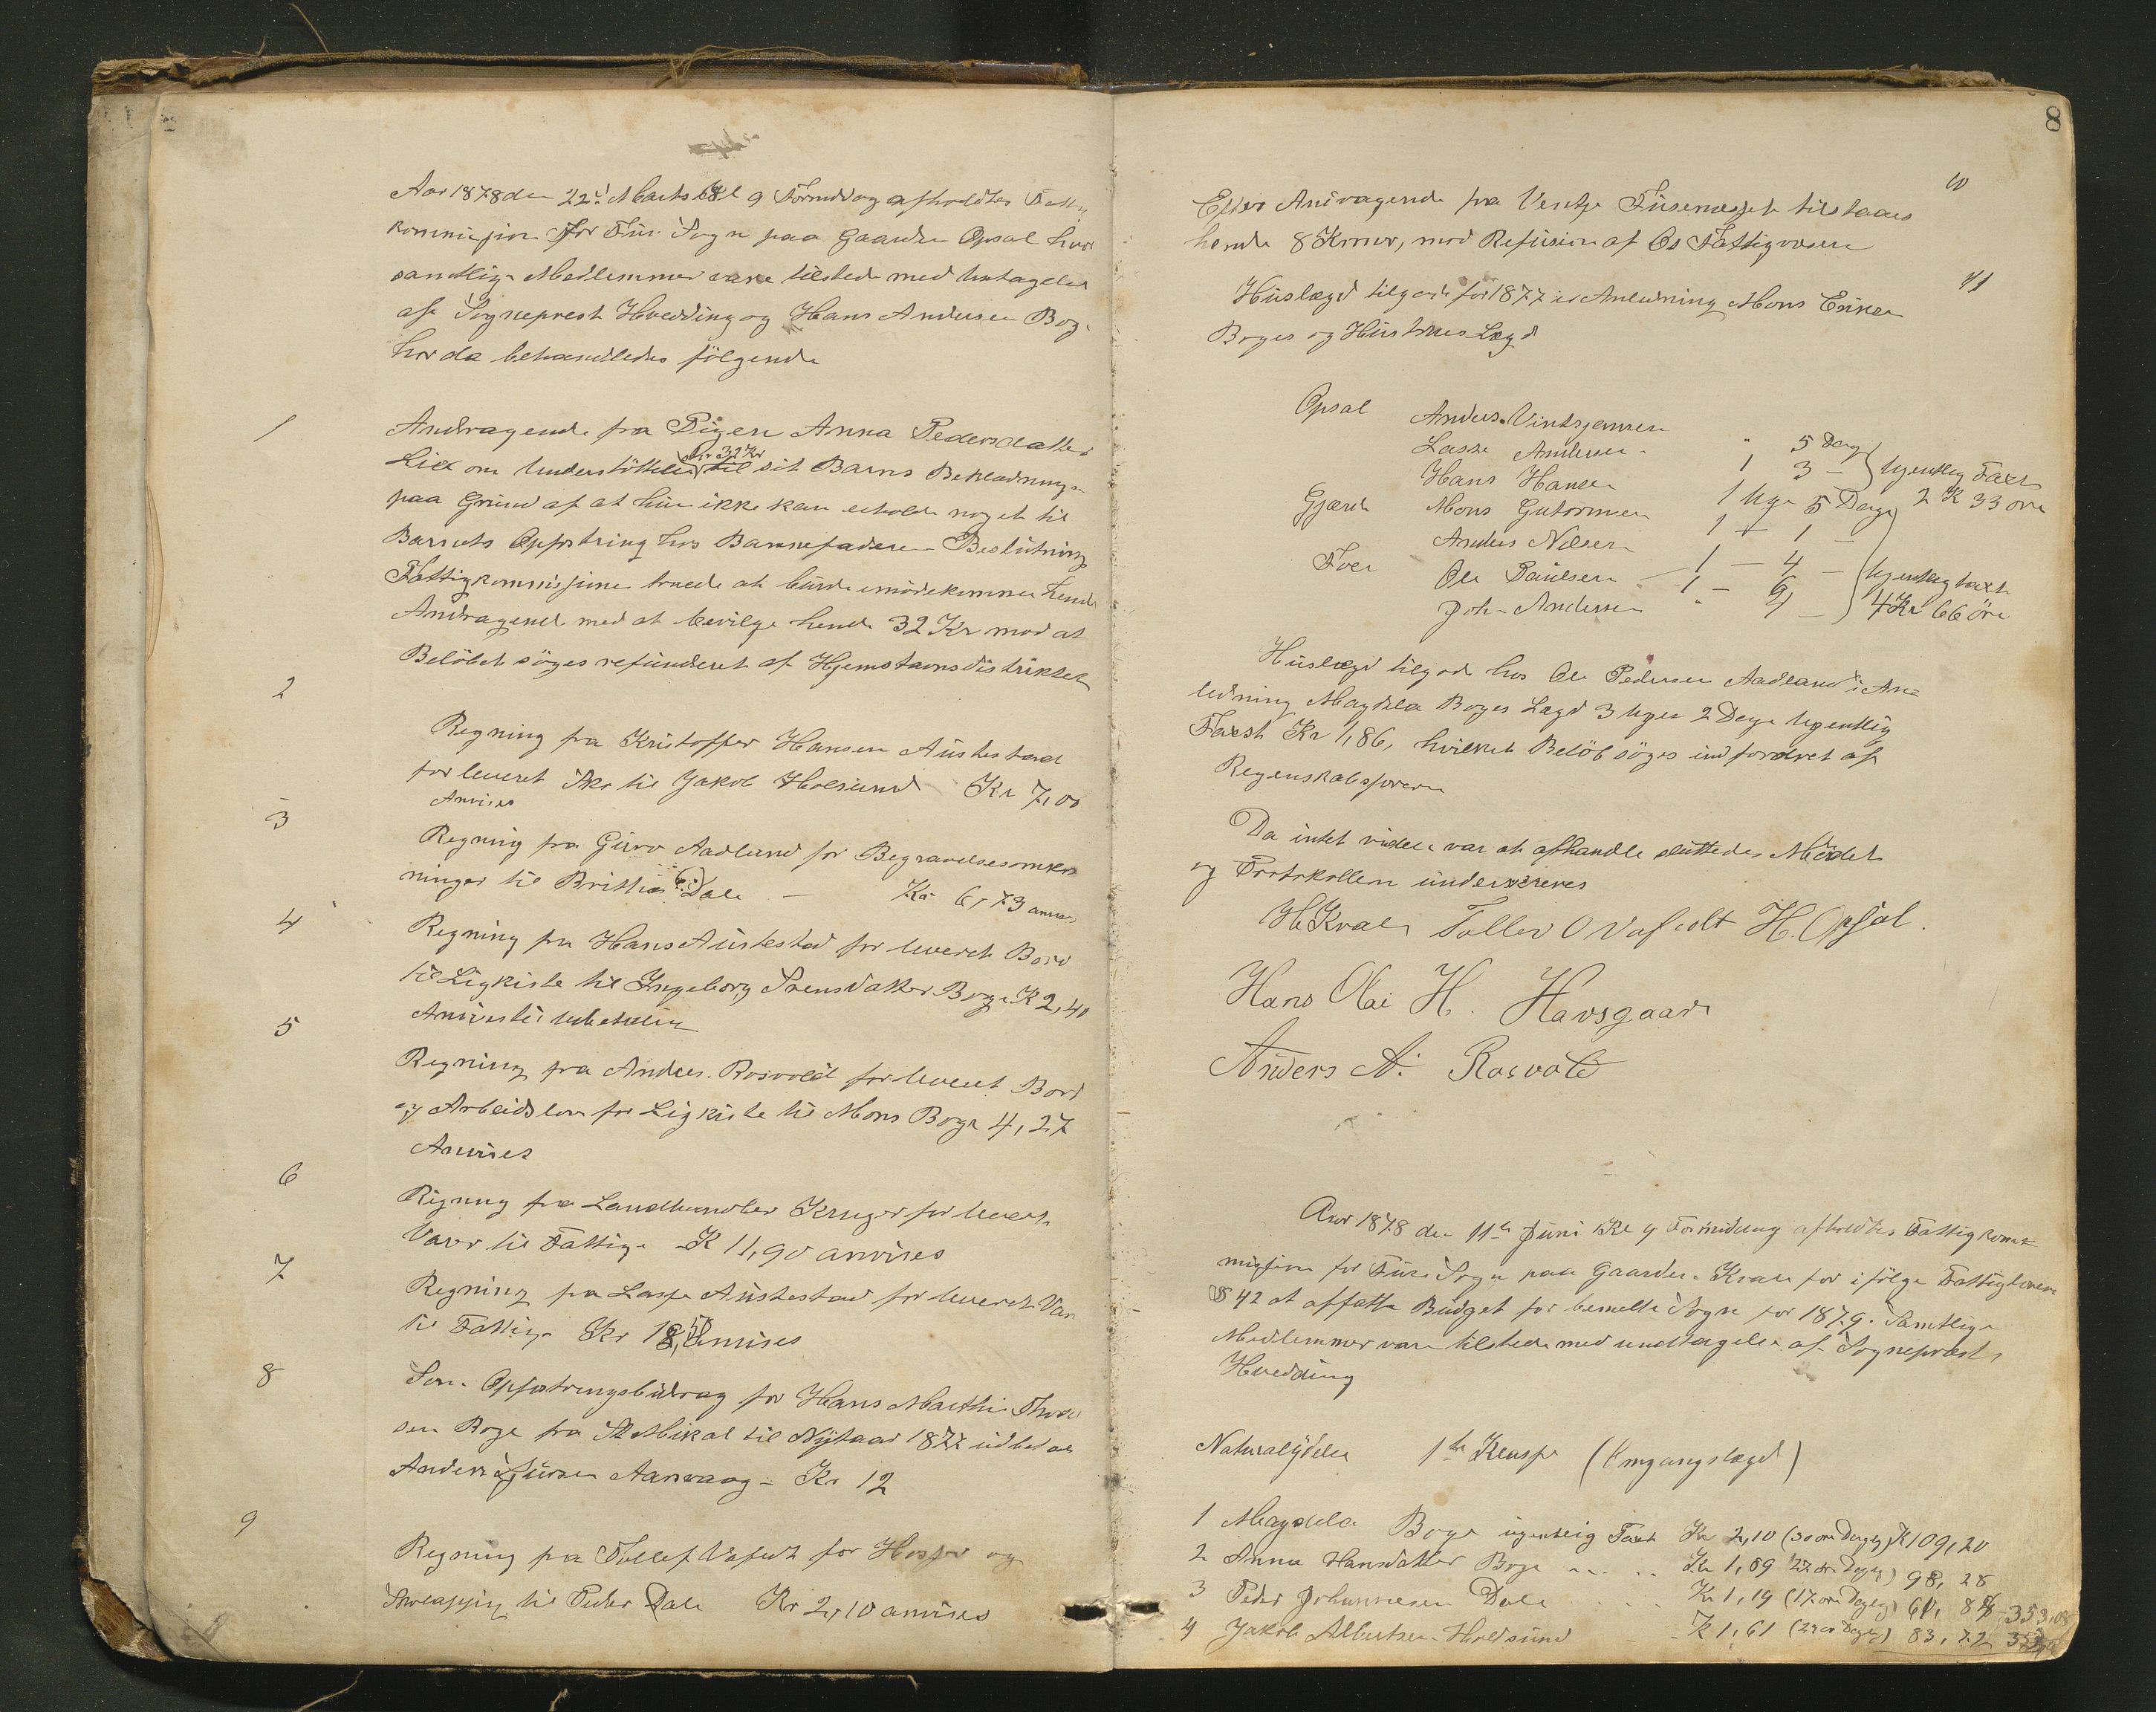 Aar 1878 den 22d Marts Kl 9 Formiddag afholdtes Fattig
kommission for Fuse Sogn paa Gaarden Opsal hvor
samtlige Medlemmer vare tilstede med Undtagelse
af Sogneprest Hvedding og Hans Andersen Boge
hvor da behandledes følgende
1
Andragende fra Pigen Anna Pedersdatter
Lid om Understøttelse Kr 32 Kr til sit Barns Beklædning
paa Grund af at hun ikke kan erholde noget til
Barnets Opfostring hos Barnefaderen Beslutning
Fattigkommissionen troede at burde imødekomme hendes
Andragende med at bevilge hende 32 Kr mod at
Beløbet søges refunderet af Hjemstavnsdistriktet
2
Regning fra Kristoffer Hansen Austestad
for leveret Sko til Jakob Holsund Kr 7,00
Anvises
3
Regning fra Guro Aadland for Begravelsesomkost
ninger til Brithe Dale - Kr 6,73 anvises
4
Regning fra Hans Austestad for leveret Bord
til Ligkiste til Ingeborg Svensdatter Boge K 2,40
Anvises til Udbetaling
5
Regning fra Anders Rosvold for leveret Bord
og Arbeidsløn for Ligkiste til Mons Boge 4,27
Anvises
6
Regning fra Landhandler Kruger for leveret
Varer til Fattige K 11,90 anvises
7
Regning fra Lasse Austestad for leveret Var
til Fattige Kr 18, anvises
8
Som Opfostringsbidrag for Hans Marthin Thor
sen Boge fra St Mikal til Nytaar 1877 udbetales
Anders Sjursen Aarvaag - Kr 12
9
Regning fra Tollef Vafult for Hosper og
til Peder Dale Kr 2,10 anvises
8
10
Efter Andragende fra Ventje Fusenesset tilstaaes
hende 8 Kroner, mod Refusion af Os Fattigvæsen
11
Huslægd tilgode for 1877 i Anledning Mons Eriksen
Boges og Hustrues Lægd
Opsal Anders Vintsjansen " 5 Dage
Lasse Andersen 1 3 - Ugentlig Taxt
Hans Hansen 1 Uge 5 Dage 2 K 33 øre
Gjærde Mons Guttormsen 1 + 1 -
Anders Nilsen 1 - 4 - Ugentlig taxt
Ole Paulsen 1 - 6 4 Kr 66 øre
Joh. Andersen " 4 -
Huslægd tilgode hos Ole Pedersen Aadland i An=
ledning Magdela Boges Lægd 3 Uger 2 Dage Ugentlig
Taxst Kr 1,86, hvilket Beløb søges indfordret af
Regenskabsføreren
Da intet videre var at afhandle sluttedes Mødet
og Protokollen underskreves
H Kvale Tollev O Vafult H. Opsal.
Hans Olai H. Havsgaard
Anders A: Rosvold
Aar 1878 den 11te Juni Kl 9 Formiddag afholdtes Fattigkom=
mission for Fuse Sogn paa Gaarden Kvale for ifølge Fattigloven
§ 42 at affatte Budget for bemeldte Sogn for 1879. Samtlige
Medlemmer vare tilstede med undtagelse af Sogneprest
Hvedding
Naturalydelse 1te Klasse (Omgangslægd)
1 Magdela Boge ugentlig Taxt Kr 2,10 (30 øre Daglig) K 109,20
2 Anna Hansdatter Boge Kr 1,89 (27 øre Daglig) 98,28
3 Peder Johannesen Dale Kr 1,19 (17 øre Daglig) 61,88 353,08
4 Jakob Albertsen Holdsund K 1,61 (23 øre Daglig) 83,72